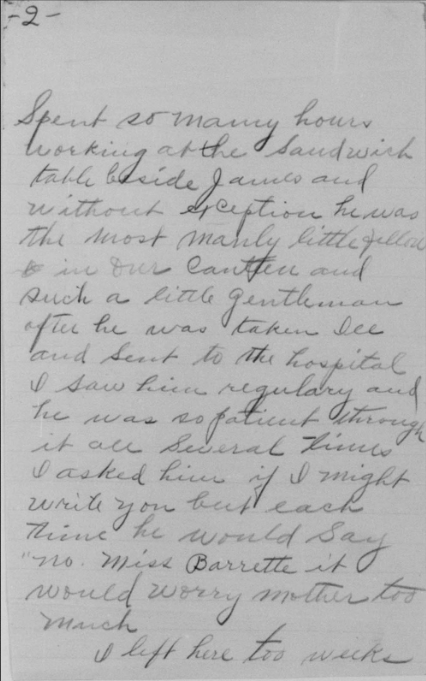 -2-
Spent so many hours
working at the Sandwich
table beside James and
without exception he was
the most manly little fellow
in our Canteen and
such a little gentleman
after he was taken Ill
and sent to the hospital
I saw him regulary and
he was so patient through
it all Several times
I asked him if I might
write you but each
time he would say
"no. Miss Barrette it
would worry mother too
much
I left here too weeks